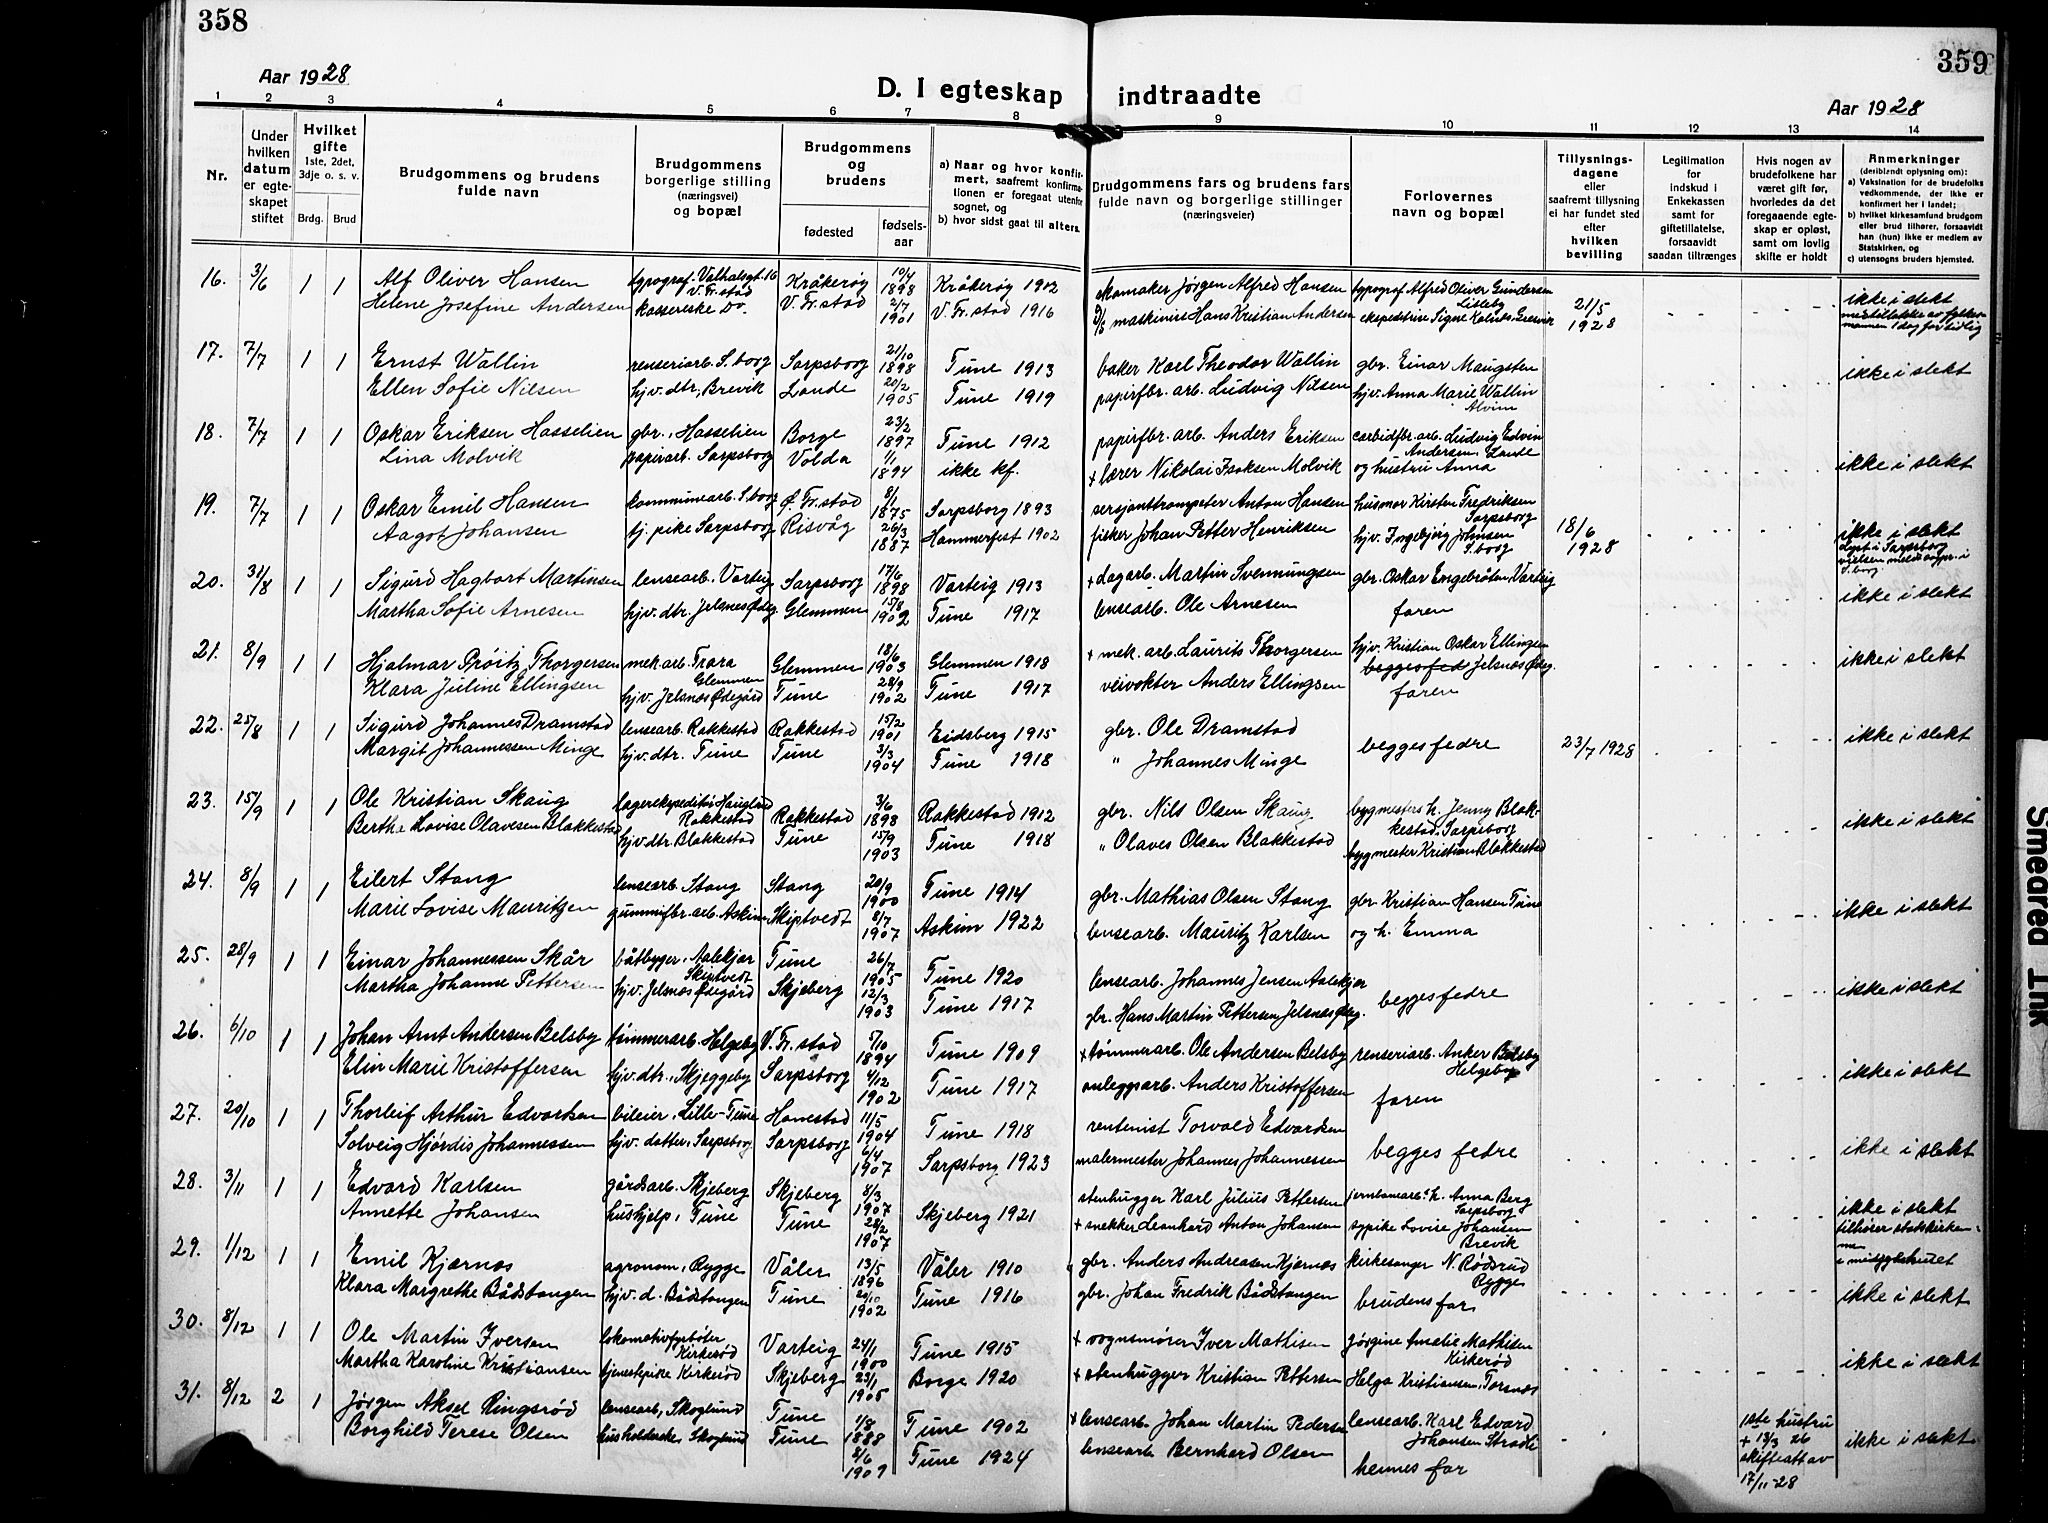 358
Aar 1928
D. I egteskap
1 2 3 4 5 6 7 8
Nr.
Under hvilken datum er egteskapet stiftet
Hvilket gifte 1ste, 2det, 3dje o. s. v.
Brdg. Brud
Brudgommens og brudens fulde navn
Brudgommens borgerlige stilling (næringsvei) og bopæl
Brudgommens og brudens
fødested
fødsels-aar
a) Naar og hvor konfirmert, saafremt konfirmationen er foregaat utenfor sognet, og
b) hvor sidst gaat til alters.
16. 3/6 1 1 Alf Oliver Hansen typograf. Valhalsgt. 16 V. Fr.stad Kråkerøy 10/4 1898 Kråkerøy 1902
Helene Josefine Andersen kassererske Do. V. Fr. stad 2/7 1901 V. Fr. stad 1916
17. 7/7 1 1 Ernst Wallin renseriarb. S.borg Sarpsborg 21/10 1898 Tune 1913
Ellen Sofie Nilsen hjv. dtr., Brevik Lande 20/2 1905 Tune 1919
18. 7/7 1 1 Oskar Eriksen Hasselien gbr., Hasselien Borge 23/2 1897 Tune 1912
Lina Molvik papirarb. Sarpsborg Volda 1/1 1894 ikke kf.
19. 7/7 1 1 Oskar Emil Hansen kommunearb. S.borg Ø. Fr. stad 8/1 1875 Sarpsborg 1893
Aagot Johansen tj. pike Sarpsborg Risvåg 26/3 1887 Hammerfest 1902
20. 31/8 1 1 Sigurd Hagbart Martinsen lensearb. Varteig Sarpsborg 17/6 1898 Varteig 1913
Martha Sofie Arnesen hjv. dtr. Jelsnes Ødeg. Glemmen 15/8 1902 Tune 1917
21. 8/9 1 1 Hjalmar Prøitz Thorgersen mek. arb. Trara Glemmen Glemmen 18/6 1903 Glemmen 1918
Klara Juline Ellingsen hjv. Jelsnes Ødegård Tune 28/9 1902 Tune 1917
22. 25/8 1 1 Sigurd Johannes Dramstad lensearb. Rakkestad Rakkestad 15/2 1901 Eidsberg 1915
Margit Johannessen Minge hjv. dtr. Tune Tune 3/3 1904 Tune 1918
23. 15/9 1 1 Ole Kristian Skaug lagerekspeditør Rakkestad Rakkestad 3/6 1898 Rakkestad 1912
Berthe Lovise Olavesen Blakkestad hjv. dtr. Blakkestad Tune 15/9 1903 Tune 1918
24. 8/9 1 1 Eilert Stang lensearb. Stang Stang 20/9 1900 Tune 1914
Marie Lovise Mauritzen gummifbr. arb. Askim Skiptvedt 8/7 1907 Askim 1922
25. 28/9 1 1 Einar Johannessen Skår båtbygger, Aalekjær Skiptvedt Tune 26/7 1905 Tune 1920
Martha Johanne Pettersen hjv. Jelsnes Ødegård Skjeberg 12/3 1903 Tune 1917
26. 6/10 1 1 Johan Arnt Andersen Belsby tømmerarb. Helgeby V. Fr. stad 5/10 1894 Tune 1909
Elin Marie Kristoffersen hjv. dtr., Skjeggeby Sarpsborg 4/12 1902 Tune 1917
27. 20/10 1 1 Thorleif Arthur Edvardsen bileier, Lille-Tune Hanestad 11/5 1904 Tune 1918
Solveig Hjørdis Johannessen hjv. datter, Sarpsborg Sarpsborg 6/4 1907 Sarpsborg 1923
28. 3/11 1 1 Edvard Karlsen gårdsarb. Skjeberg Skjeberg 8/3 1907 Skjeberg 1921
Annette Johansen hushjelp, Tune Tune 28/2 1907
29. 1/12 1 1 Emil Kjærnes agronom, Rygge Våler 13/5 1896 Våler 1910
Klara Margrethe Bådstangen hjv. d. Bådstangen Tune 20/10 1902 Tune 1916
30. 8/12 1 1 Ole Martin Iversen lokomotivfyrbøter Kirkerød Varteig 24/1 1900 Tune 1915
Martha Karoline Kristiansen tjenestepike Kirkerød Skjeberg 23/1 1905 Borge 1920
31. 8/12 2 1 Jørgen Aksel Ringsrød lensearb., Skoglund Tune 1/8 1888 Tune 1902
Borghild Terese Olsen husholderske Skoglund Tune 8/6 1909 Tune 1924
359
indtraadte
Aar 1928
9 10 11 12 13 14
Brudgommens fars og brudens fars fulde navn og borgerlige stillinger (næringsveier)
Forlovernes navn og bopæl
Tillysningsdagene eller saafremt tillysning ei har fundet sted efter hvilken bevilling
Legitimation for indskud i Enkekassen samt for giftetillatelse, forsaavidt saadan tiltrænges
Hvis nogen av brudefolkene har været gift før, hvorledes da det foregaaende egteskap er opløst, samt om lovlig skifte er holdt
Anmerkninger (deriblandt oplysning om):
a) Vaksination for de brudefolks vedkommende, der ikke er konfirmert her i landet;
b) hvilket kirkesamfund brudgom eller brud tilhører, forsaavidt han (hun) ikke er medlem av Statskirken, og
c) utensogns bruders hjemsted.
skomaker Jørgen Alfred Hansen typograf Alfred Oliver Gundersen Lisleby 21/5 1928 ikke i slekt
maskinist Hans Kristian Andersen ekspeditrise Signe Gressvik med tillatelse av fylkesmannen 1 dag for tidlig
baker Karl Theodor Wallin gbr. Einar Maugsten ikke i slekt
papirfbr. arb. Ludvig Nilsen hjv. Anna Marie Wallin Alvim
papirfbr. arb. Anders Eriksen carbidfbr. arb. Ludvig Edvin Andersen, Lande ikke i slekt
+ lærer Nikolai Isaksen Molvik og hustru Anna
sersjanttrompeter Anton Hansen husmor Kirsten Fredriksen Sarpsborg 18/6 1928 ikke i slekt
fisker Johan Petter Henriksen hjv. Ingebjørg Johnsen S.borg lyst i Sarpsborg S.borg
+ dagarb. Martin Svennungsen gbr. Oskar Engebråten, Varteig ikke i slekt
lensearb. Ole Arnesen faren
+ mek. arb. Laurits Thorgersen hjv. Kristian Oskar Ellingsen Jelsnes Ødeg. ikke i slekt
veivokter Anders Ellingsen faren
gbr. Ole Dramstad begges fedre 23/7 1928 ikke i slekt
" Johannes Minge
gbr. Nils Olsen Skaug bygmesters h. Jenny Blakkestad, Sarpsborg ikke i slekt
" Olaves Olsen Blakkestad bygmester Kristian Blakkestad
gbr. Mathias Olsen Stang gbr. Kristian Hansen Tune ikke i slekt
lensearb. Mauritz Karlsen og h. Emma
lensearb. Johannes Jensen Aalekjær begges fedre ikke i slekt
gbr. Hans Martin Pettersen Jelsnes Ødeg.
+ tømmerarb. Ole Andersen Belsby renseriarb. Anker Belsby Helgeby ikke i slekt
anleggsarb. Anders Kristoffersen faren
rentenist Torvald Edvardsen begges fedre ikke i slekt
malermester Johannes Johannessen
stenhugger Karl Julius Pettersen jernbanearb. h. Anna Berg Sarpsborg ikke i slekt
+ snekker Leonhard Anton Johansen sypike Lovise Johansen Brevik tilhører statskirken
gbr. Anders Andreasen Kjærnes kirkesanger N. Rødsrud Rygge
gbr. Johan Fredrik Bådstangen brudens far ikke i slekt
+ vognsmører Iver Mathisen Jørgine Amalie Mathisen Kirkerød ikke i slekt
+ stenhugger Kristian Pettersen Helga Kristiansen, Torsnes
+ lensearb. Johan Martin Pedersen lensearb. Karl Edvard Johansen 1ste hustru + 13/3 26 skifteatt av 17/11-28 ikke i slekt
lensearb. Bernhard Olsen hennes far
Smeared Ink